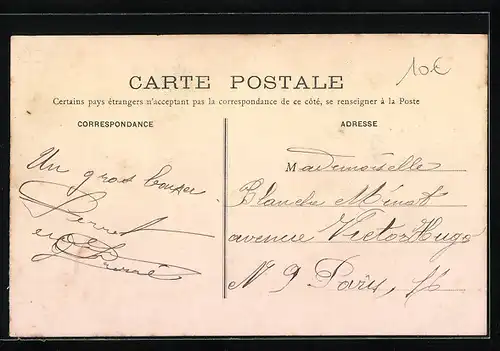 10€
CARTE POSTALE
Certains pays étrangers n'acceptant pas la correspondance de ce côté, se renseigner à la Poste
CORRESPONDANCE
ADRESSE
Un gros baiser
Mademoiselle
Blanche Ménat
avenue Victor Hugo
N 9 Paris,